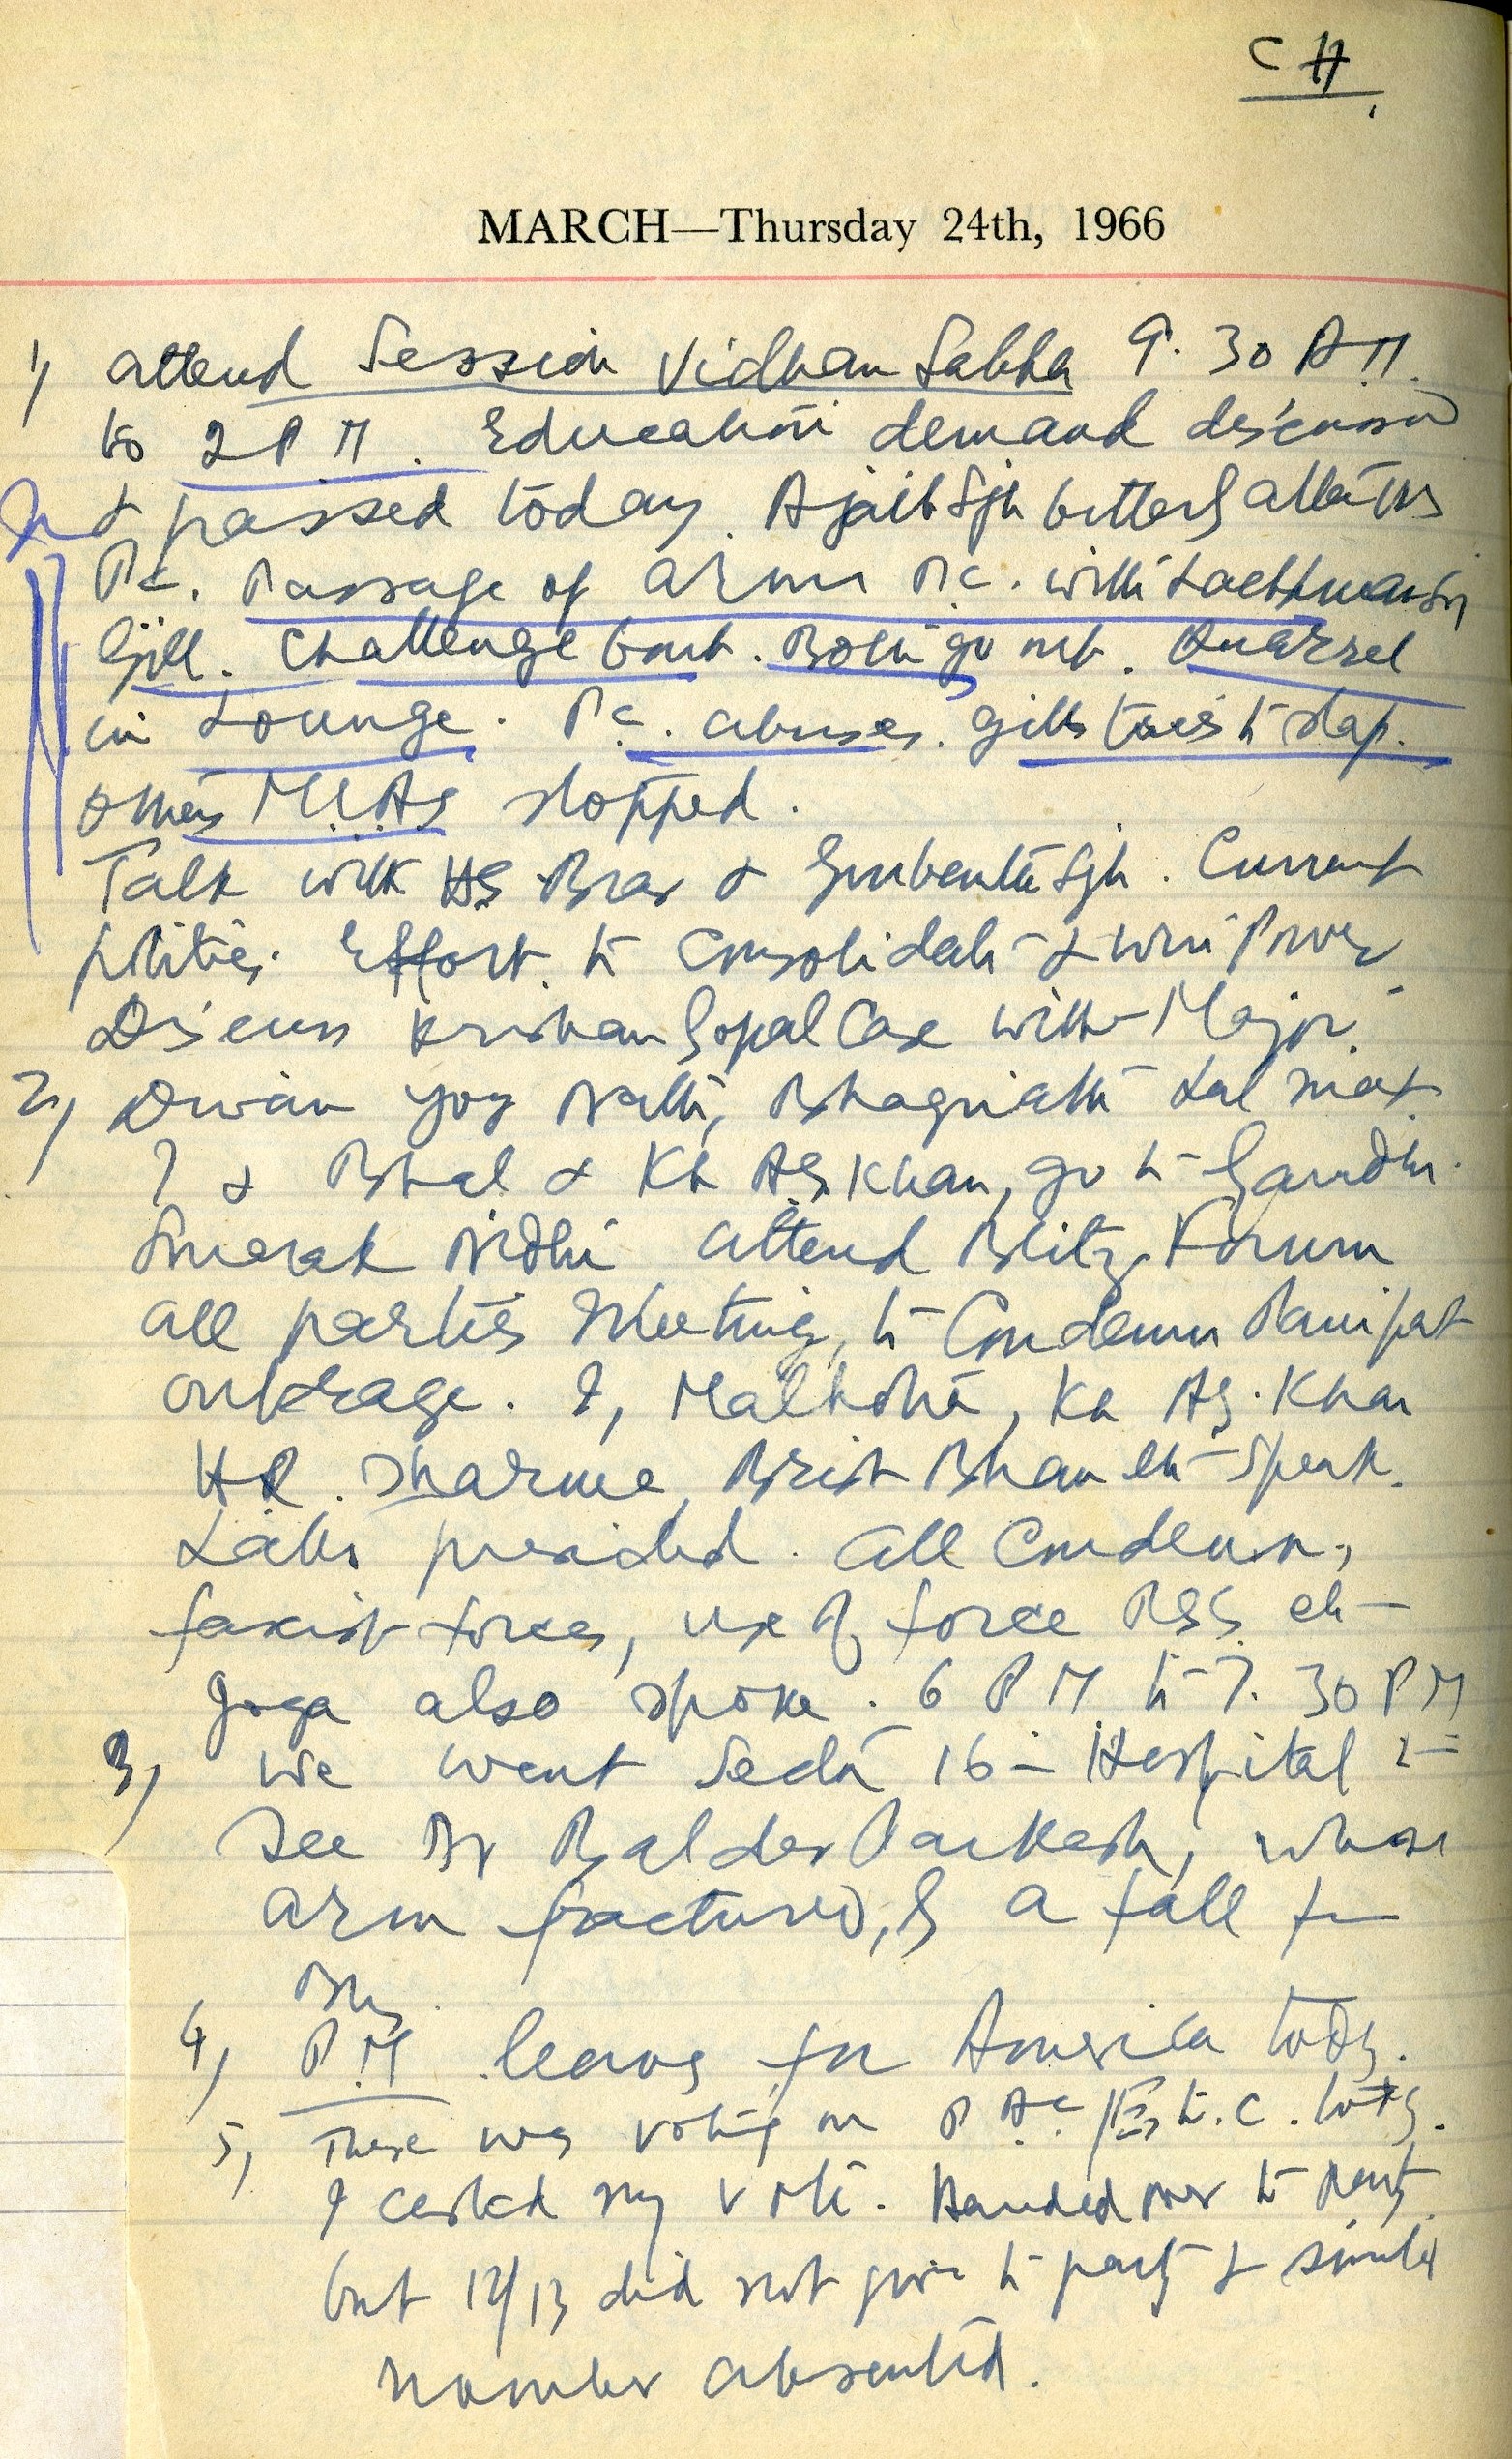 CH
MARCH—Thursday 24th, 1966
1) attend Session Vidhan Sabha 9.30 AM
to 2 PM. Education demand discussed
& passed today. Ajaib Sgh bitterly attacks
P.C. Passage of arms P.C. with Lachhman Sgh
Gill. Challenge bout. Both go out. Quarrel
in Lounge. P.C. abuses. Gill tries to slap.
others MLAs stopped.
Talk with HS Brar & Gurbanta Sgh. Current
politics. Effort to consolidate & win Power
Discuss Krishan Gopal Case with Major.
2) Diwan Yog Nath, Bhagirath Lal met
I & Bhal & Kh AG Khan, go to Gandhi
Smarak Nidhi attend Blitz Forum
all parties Meeting, to Condemn Panipat
outrage. I, Malhotra, Kh AG. Khan
H.R. Sharma, Brish Bhan etc speak.
presided. All Condemn,
fascist forces, use of force RSS etc
Joga also spoke. 6 PM to 7.30 PM
3) We went Sector 16 - Hospital to
see Dr Baldev Parkash, whose
arm fractured, by a fall from
Bus.
4) P.M leaves for America today.
5) There was voting on P.A.C / Est. C. today.
I casted my vote. Handed over to party
but 12/13 did not give to party & similar
number absented.